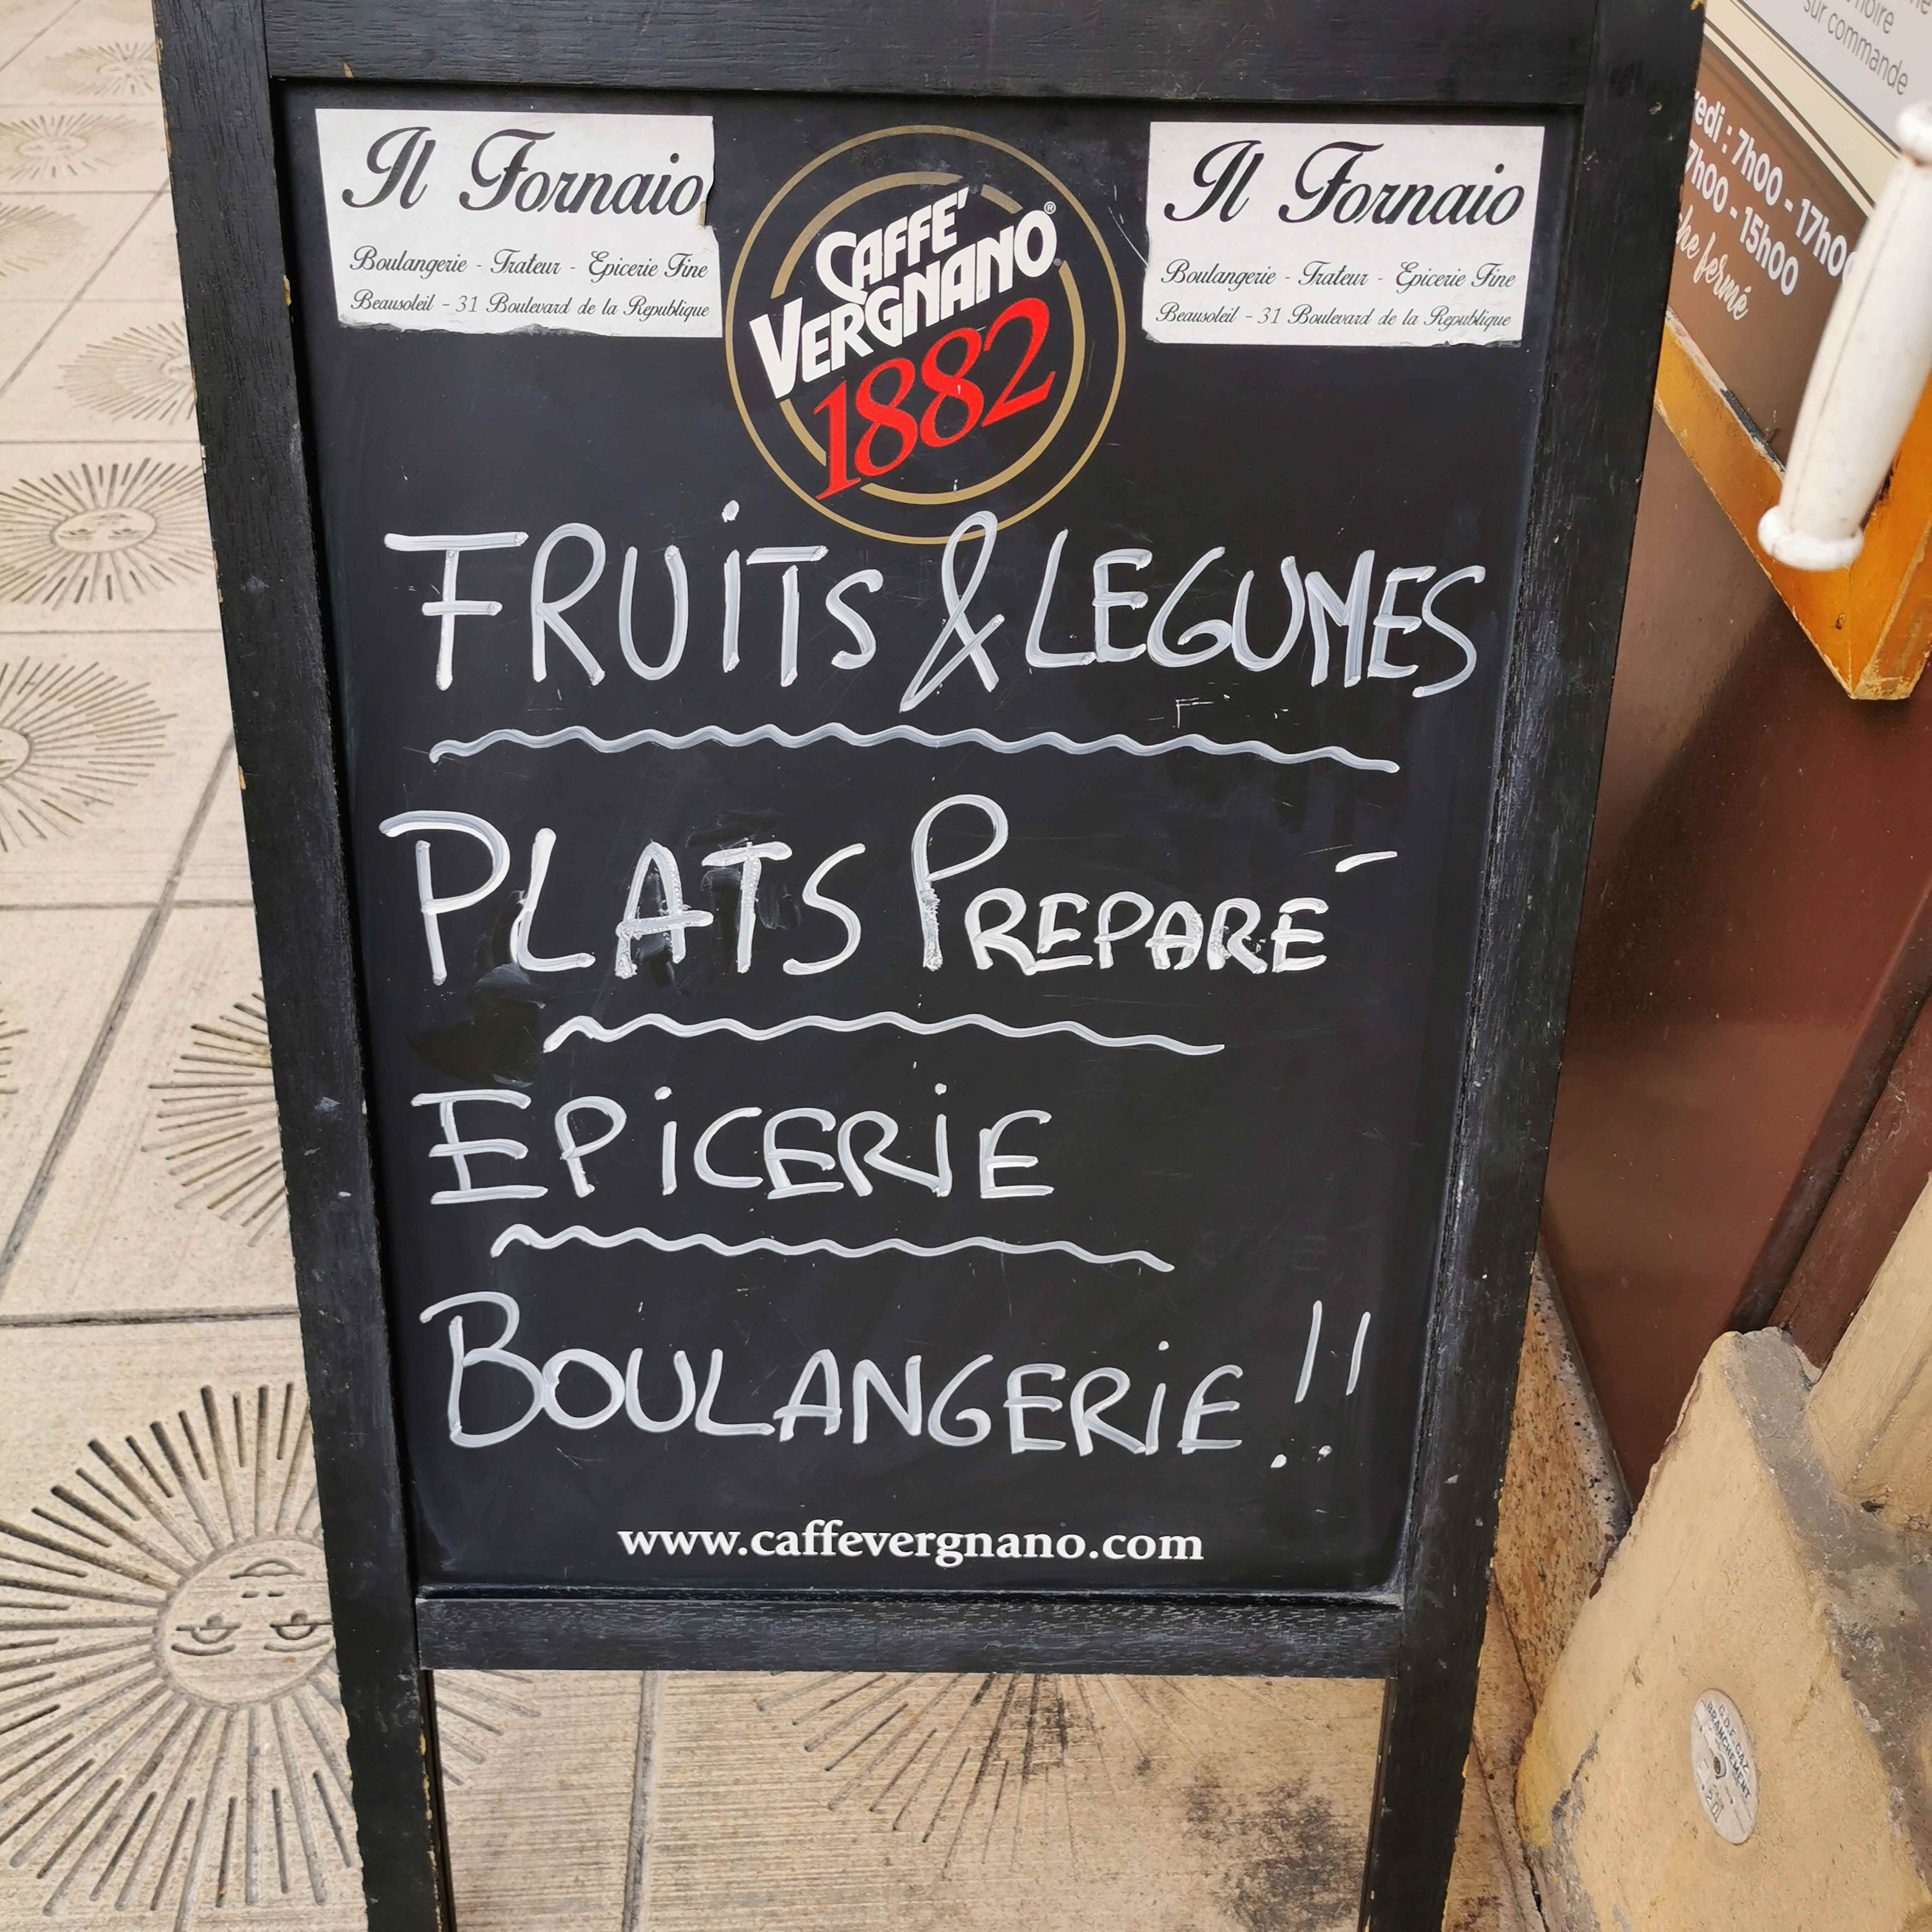 Il Fornaio
Boulangerie - Trateur - Epicerie Fine
Beausoleil - 31 Boulevard de la Republique
CAFFE'
VERGNANO®
1882
Il Fornaio
Boulangerie - Trateur - Epicerie Fine
Beausoleil - 31 Boulevard de la Republique
FRUiTS & LEGUMES
PLATS PREPARÉ
EPiCERiE
BOULANGERiE !!
www.caffevergnano.com
sur commande
redi : 7h00 - 17h00
7h00 - 15h00
fermé
G.D.F. GAZ
BRANCHEMENT